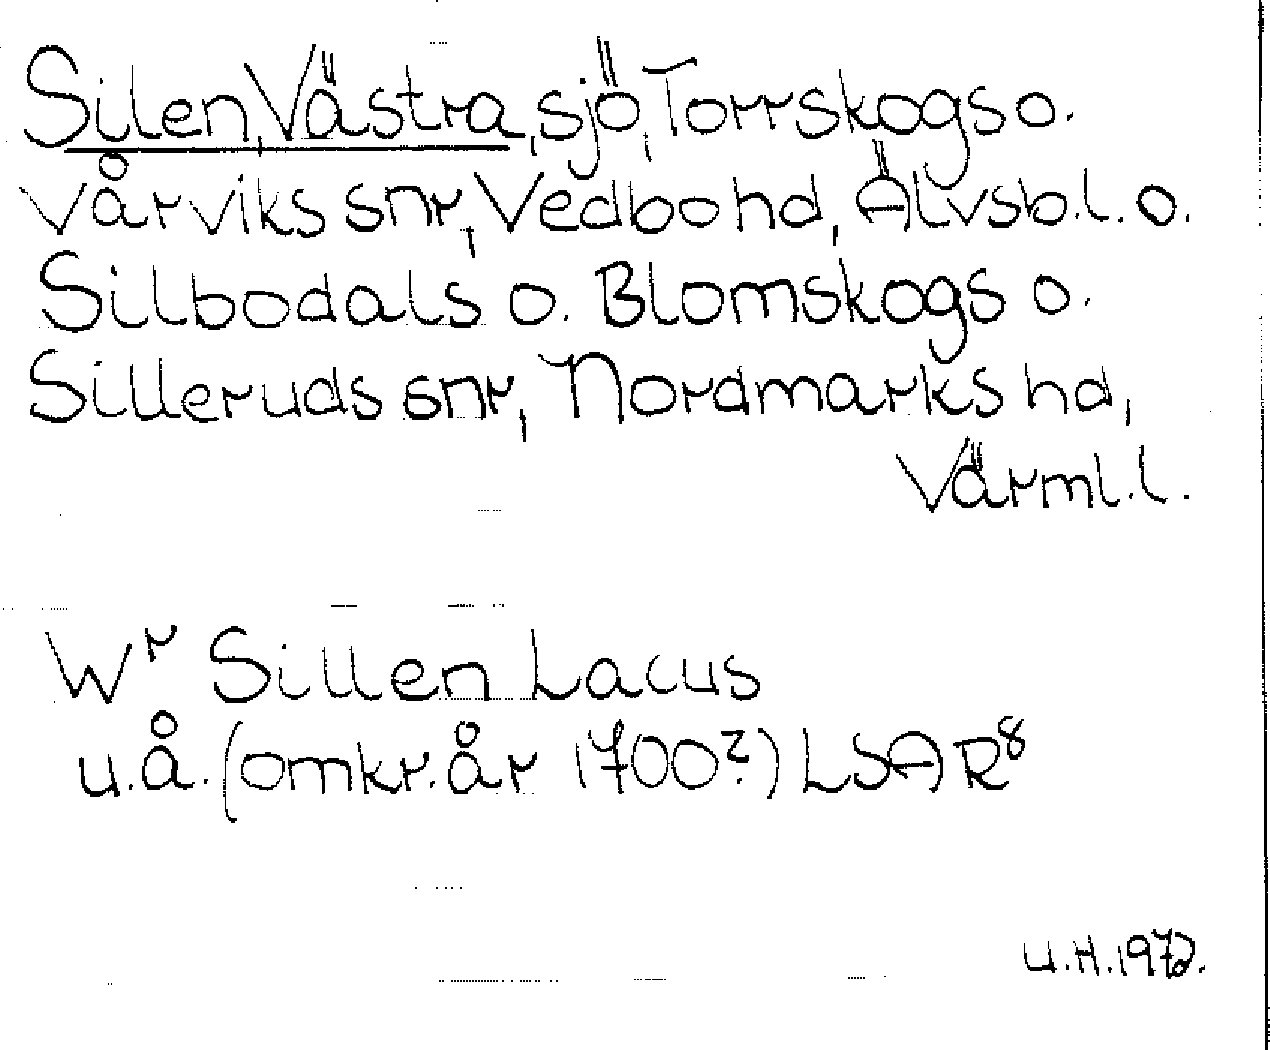 Silen, Västra, sjö, Torrskogs o.
Vårviks snr, Vedbo hd, Älvsb.l. o.
Silbodals o. Blomskogs o.
Silleruds snr, Nordmarks hd,
Värml.l.
Wr Sillen Lacus
u.å. (omkr. år 1700?) LSA R8
U.H. 1972.